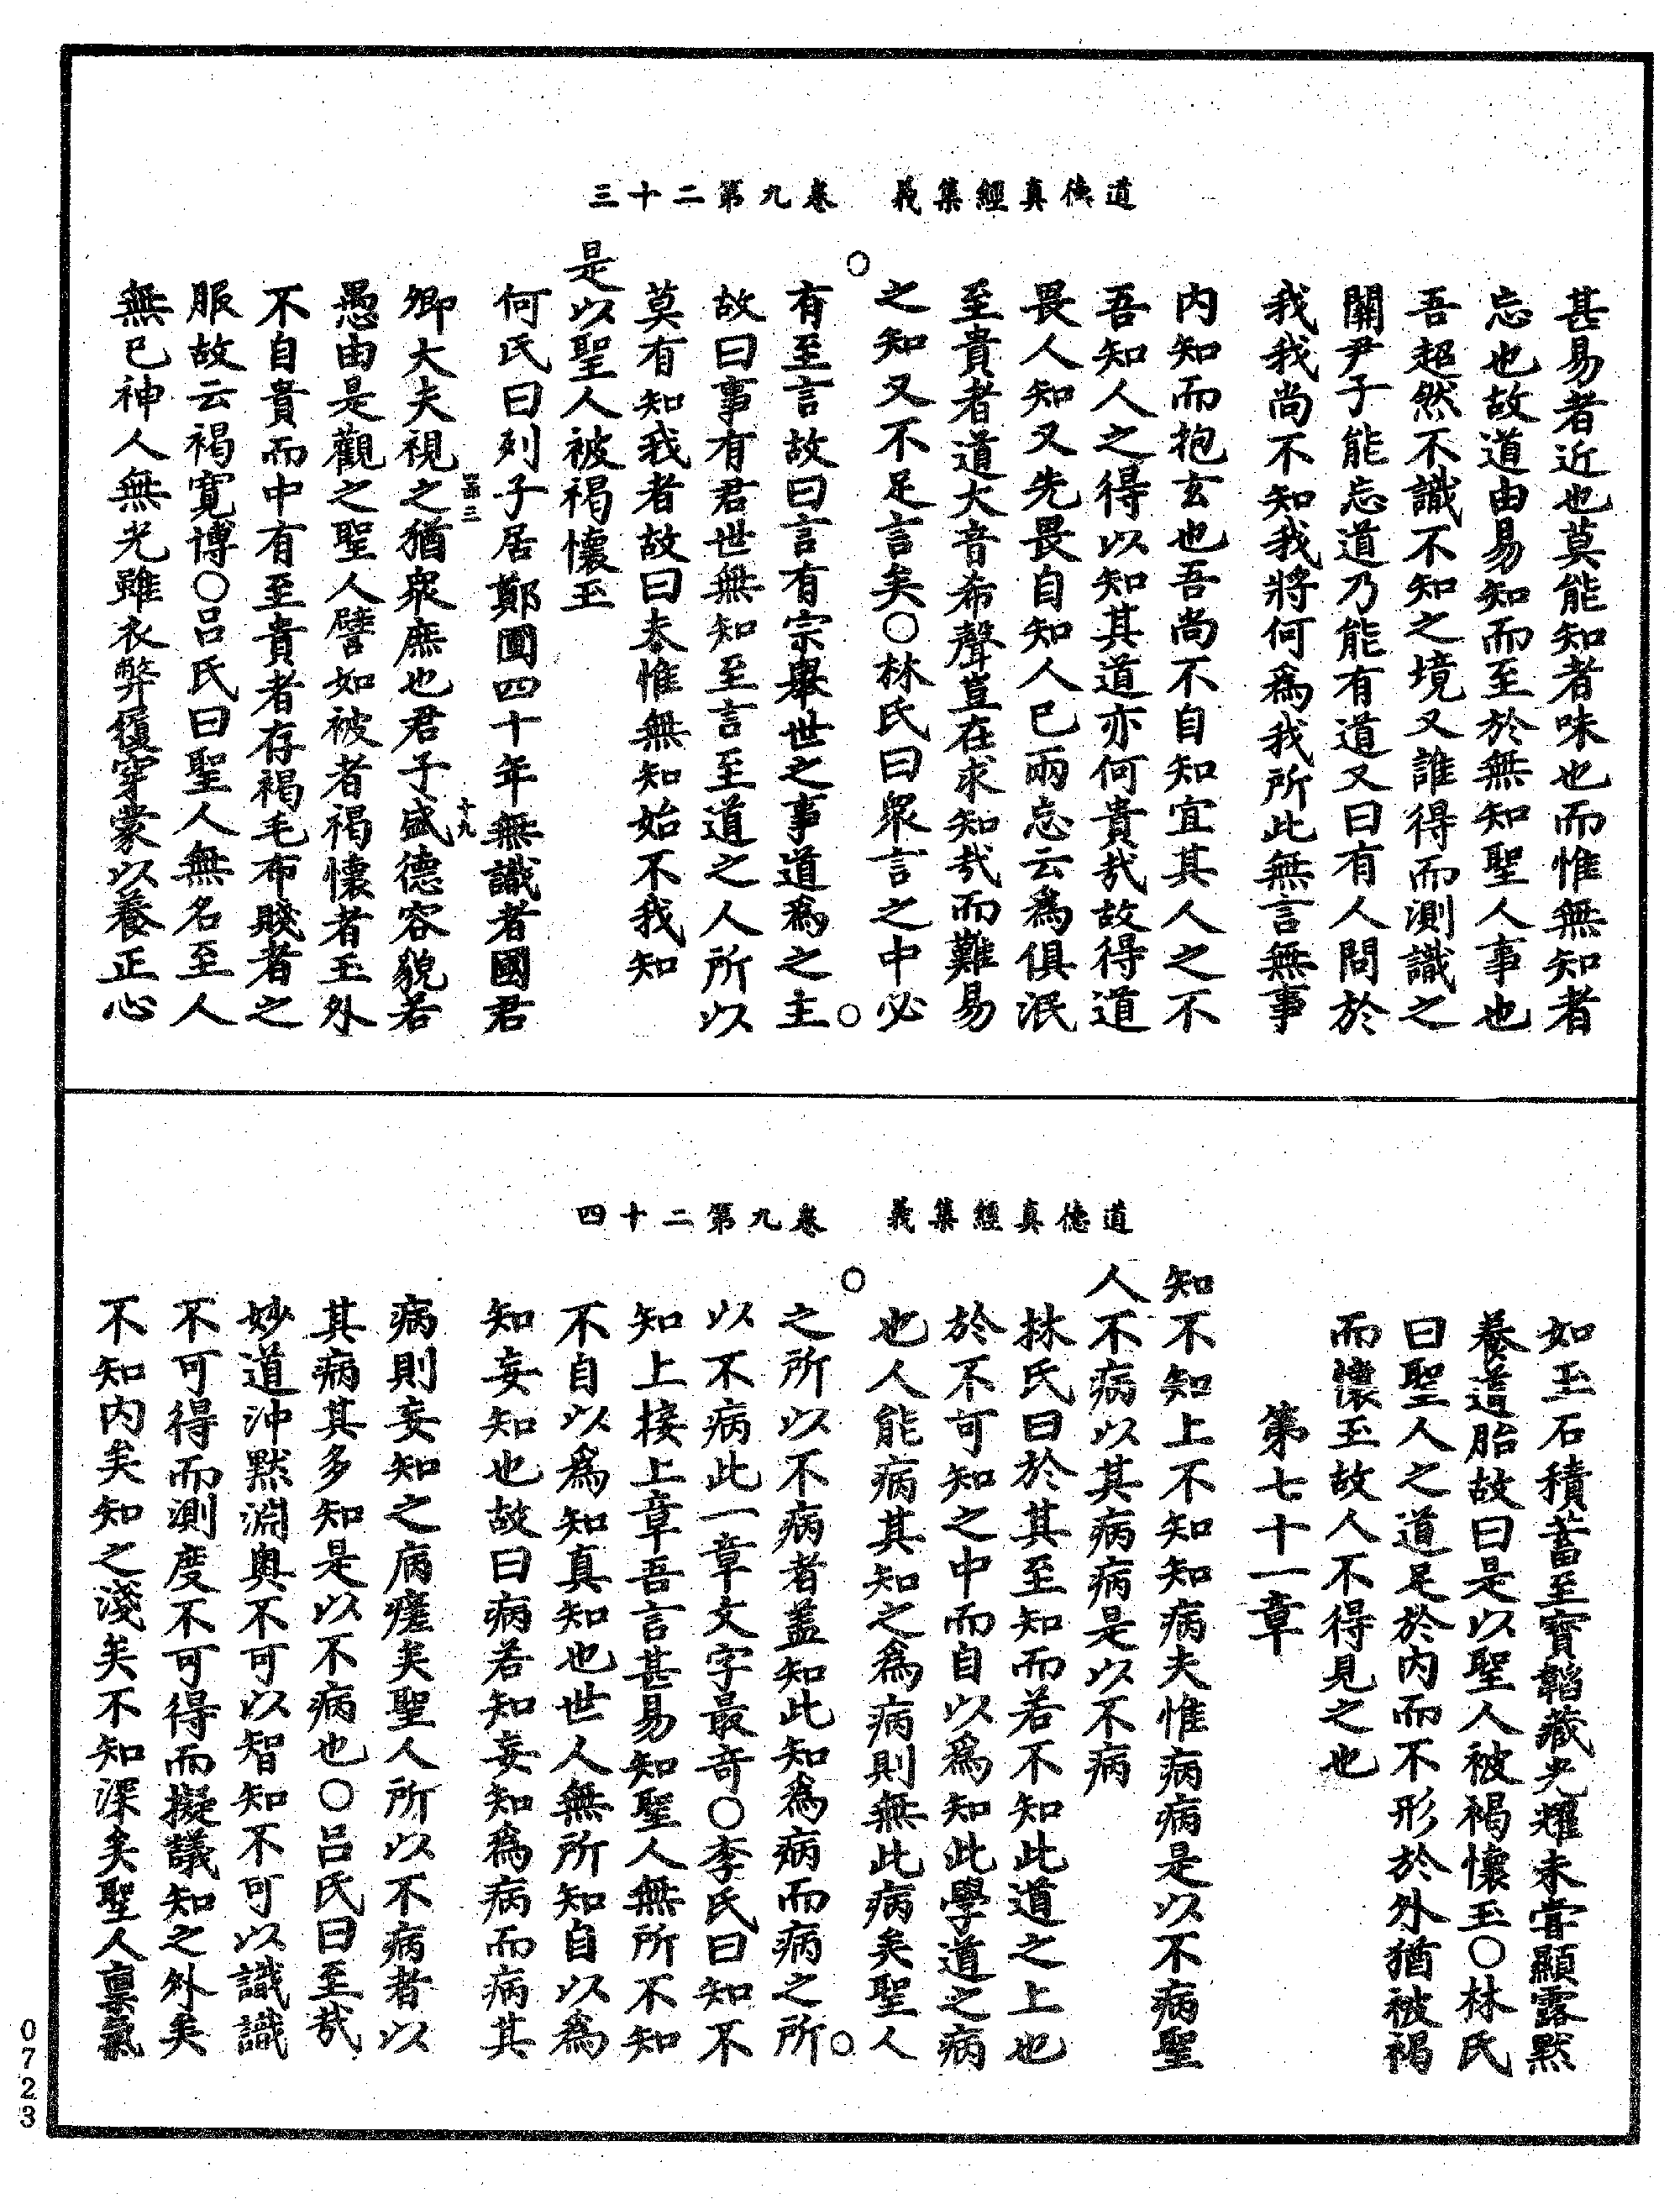 道德真經集義　卷九第二十三
甚易者近也莫能知者味也而惟無知者
忘也故道由易知而至於無知聖人事也
吾超然不識不知之境又誰得而測識之
關尹子能忘道乃能有道又曰有人問於
我我尚不知我將何爲我所此無言無事
内知而抱玄也吾尚不自知宜其人之不
吾知人之得以知其道亦何貴哉故得道
畏人知又先畏自知人已兩忘云爲俱泯
至貴者道大音希聲豈在求知哉而難易
之知又不足言矣○林氏曰衆言之中必
有至言故曰言有宗舉世之事道爲之主
故曰事有君世無知至言至道之人所以
莫有知我者故曰夫惟無知始不我知
是以聖人被褐懷玉
何氏曰列子居鄭圃四十年無識者國君
卿大夫視之猶衆庶也君子盛德容貌若
愚由是觀之聖人譬如被者褐懷者玉外
不自貴而中有至貴者存褐毛布賤者之
服故云褐寬博○呂氏曰聖人無名至人
無已神人無光雖衣弊履穿蒙以養正心
十九
道德真經集義　卷九第二十四
如玉石積蓄至寶韜藏光耀未嘗顯露黙
養道胎故曰是以聖人被褐懷玉○林氏
曰聖人之道足於内而不形於外猶被褐
而懷玉故人不得見之也
第七十一章
知不知上不知知病夫惟病病是以不病聖
人不病以其病病是以不病
林氏曰於其至知而若不知此道之上也
於不可知之中而自以爲知此學道之病
也人能病其知之爲病則無此病矣聖人
之所以不病者蓋知此知爲病而病之所
以不病此一章文字最奇○李氏曰知不
知上接上章吾言甚易知聖人無所不知
不自以爲知真知也世人無所知自以爲
知妄知也故曰病若知妄知爲病而病其
病則妄知之病瘥矣聖人所以不病者以
其病其多知是以不病也○呂氏曰至哉
妙道沖黙淵奥不可以智知不可以識識
不可得而測度不可得而擬議知之外矣
不知内矣知之淺矣不知深矣聖人稟氣
0723